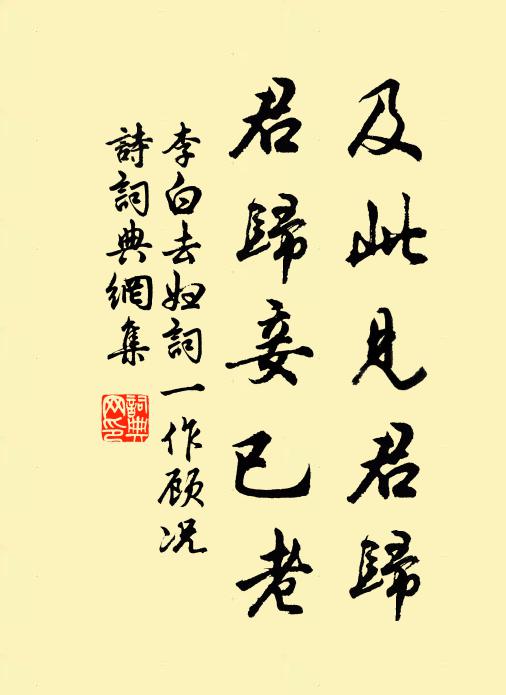 及此見君歸
君歸妾已老
李白去妇詞一作顾况
詩詞典網集
詞典网印